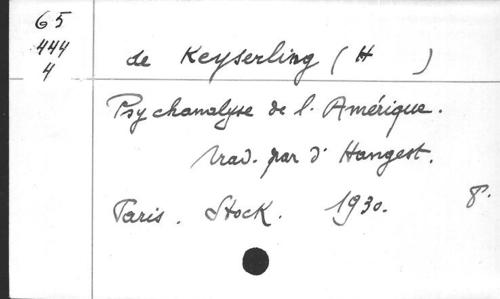 65
444
4
de Keyserling (H )
Psychanalyse de l. Amérique.
trad. par d' Hangest.
Paris. Stock. 1930. 8°.